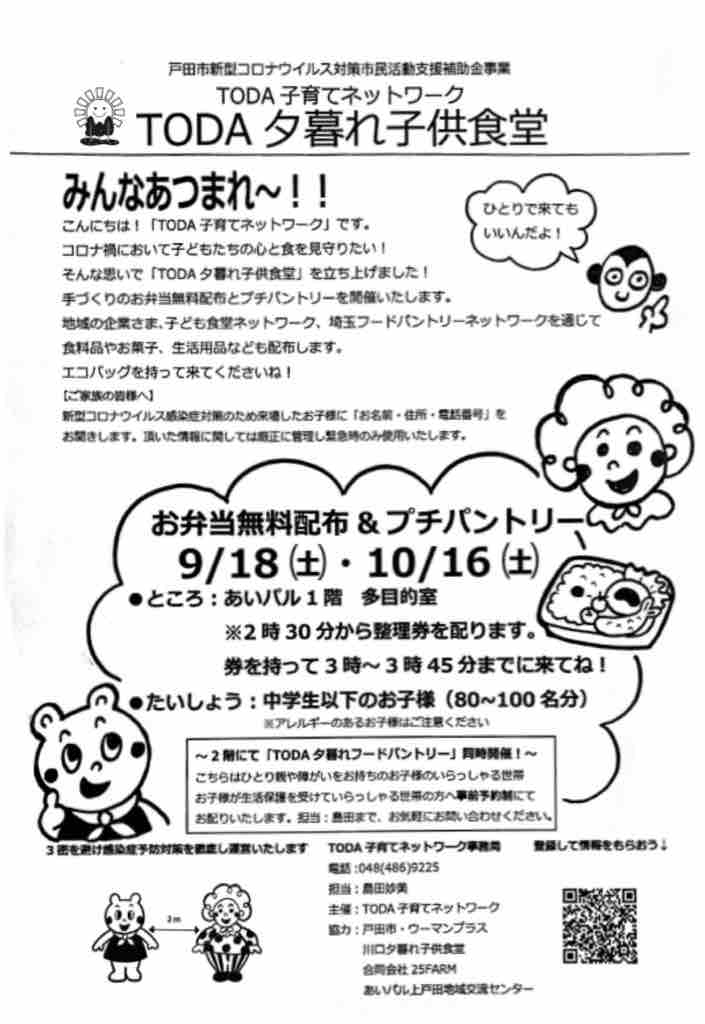 戸田市新型コロナウイルス対策市民活動支援補助金事業
TODA 子育てネットワーク
TODA 夕暮れ子供食堂
みんなあつまれ～！！
こんにちは！「TODA 子育てネットワーク」です。
コロナ禍において子どもたちの心と食を見守りたい！
そんな思いで「TODA 夕暮れ子供食堂」を立ち上げました！
手づくりのお弁当無料配布とプチパントリーを開催いたします。
地域の企業さま、子ども食堂ネットワーク、埼玉フードパントリーネットワークを通じて
食料品やお菓子、生活用品なども配布します。
エコバッグを持って来てくださいね！
ひとりで来ても
いいんだよ！
【ご家族の皆様へ】
新型コロナウイルス感染症対策のため来場したお子様に「お名前・住所・電話番号」を
お聞きします。頂いた情報に関しては厳正に管理し緊急時のみ使用いたします。
お弁当無料配布＆プチパントリー
9/18㈯・10/16㈯
●ところ：あいパル１階　多目的室
※２時３０分から整理券を配ります。
券を持って３時～３時４５分までに来てね！
●たいしょう：中学生以下のお子様（80~100 名分）
※アレルギーのあるお子様はご注意ください
～２階にて「TODA 夕暮れフードパントリー」同時開催！～
こちらはひとり親や障がいをお持ちのお子様のいらっしゃる世帯
お子様が生活保護を受けていらっしゃる世帯の方へ事前予約制にて
お配りいたします。担当：島田まで、お気軽にお問い合わせください。
３密を避け感染症予防対策を徹底し運営いたします
2m
TODA 子育てネットワーク事務局
電話：048(486)9225
担当：島田妙美
主催：TODA 子育てネットワーク
協力：戸田市・ウーマンプラス
川口夕暮れ子供食堂
合同会社 25FARM
あいパル上戸田地域交流センター
登録して情報をもらおう↓